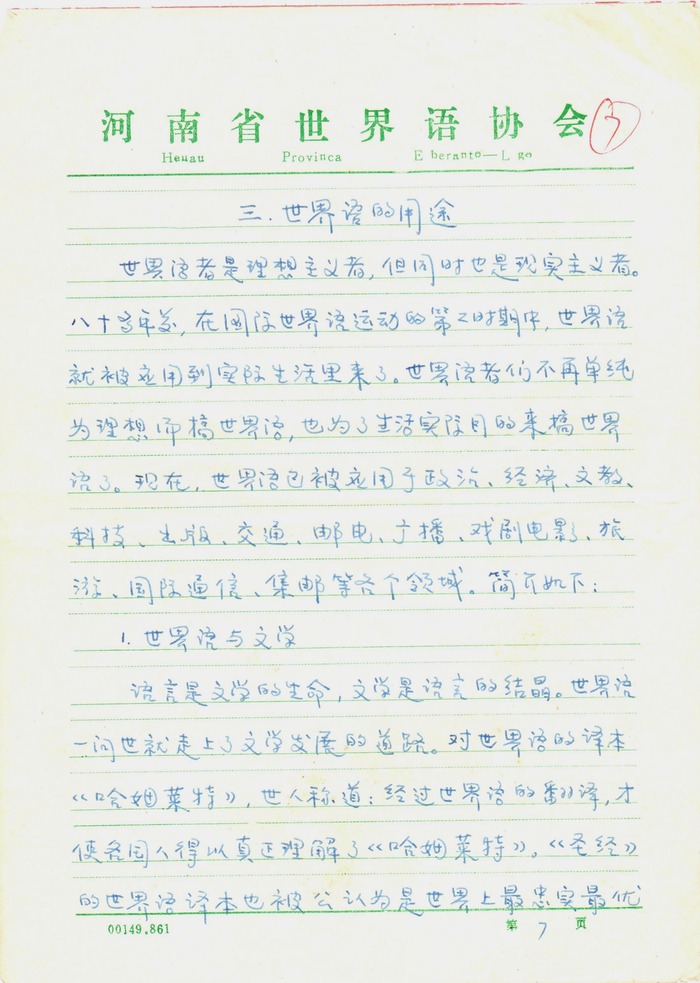 河南省世界语协会
7
Heuau Provinca E beranto—L go
三.世界语的用途
世界语者是理想主义者,但同时也是现实主义者。
八十多年前,在国际世界语运动的第二时期中,世界语
就被应用到实际生活里来了。世界语者们不再单纯
为理想而搞世界语,也为了生活实际目的来搞世界
语了。现在,世界语已被应用于政治、经济、文教、
科技、出版、交通、邮电、广播、戏剧电影、旅
游、国际通信、集邮等各个领域。简介如下:
1.世界语与文学
语言是文学的生命,文学是语言的结晶。世界语
一问世就走上了文学发展的道路。对世界语的译本
《哈姆莱特》,世人称道:经过世界语的翻译,才
使各国人得以真正理解了《哈姆莱特》。《圣经》
的世界语译本也被公认为是世界上最忠实最优
00149.861 第 7 页